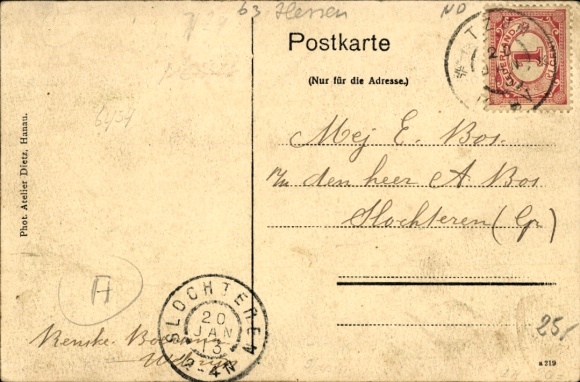 63 Hessen
ND
Postkarte
(Nur für die Adresse.)
1
Mej E. Bos.
In den heer A Bos
Slochteren (Gr.)
6431
Phot. Atelier Dietz, Hanau.
A
SLOCHTEREN
20
JAN
13
2-4N
Renske
25,-
a 219